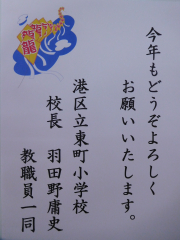 今年もどうぞよろしく
お願いいたします。
港区立東町小学校
校長　羽田野庸史
教職員一同